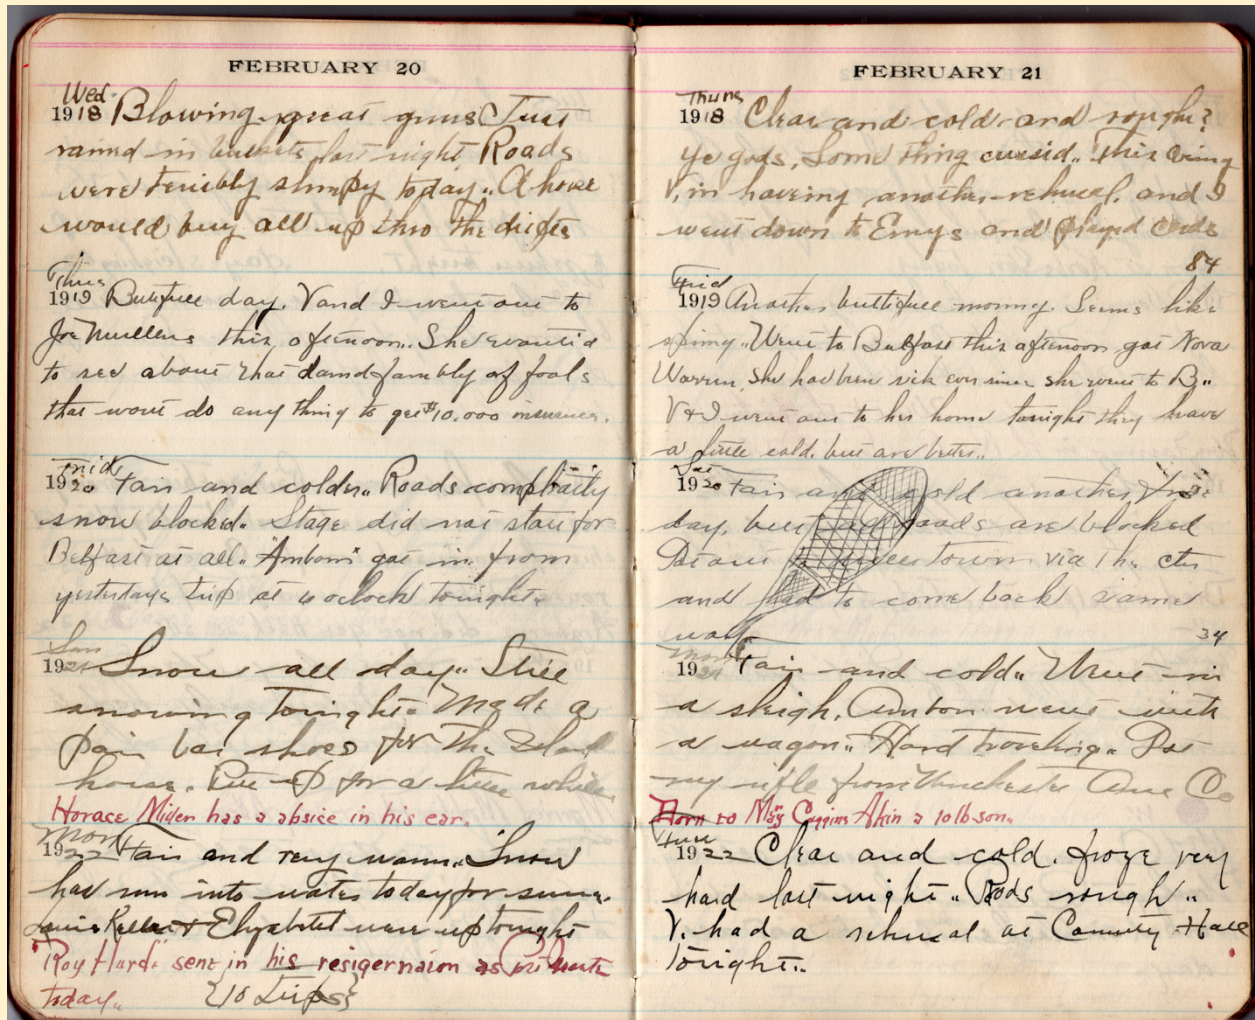 FEBRUARY 20
Wed.
1918 Blowing great guns Just
rained in buckets last night Roads
were terribly slumpy today.. A horse
would buy all up thro the drifts
Thus
1919 day. V and I went out to
Joe Muellens this afternoon.. She wanted
to see about that damd fambly of fools
that wont do any thing to get $10,000 insurance.
Frid
1920 Fair and colder.. Roads
snow blocked. Stage did not start for
Belfast at all. got in from
yesterdays trip at oclock tonight.
Sun
1921 Snow all day.. Still
snowing Tonight. Made a
pair bar shoes for the
horse. Put up for a little while.
Horace has a absice in his ear.
Mon
1922 Fair and very warm.. Snow
has run into water today for sure.
+ Elyzabet were up tonight
Roy Hard. sent in his resigernaion as
today.. {10 Trips}
FEBRUARY 21
Thurs
1918 Clear and cold and rough?
Ye gods, Some thing cussid.. This
V, in haveing another rehusal, and I
went down to Emys and played cards
84
Frid
1919 Another buttifull morning. Seems like
spring.. Went to Belfast this afternoon got Nova
Warren, She had been sick ever since she went to B..
V + I went out to her home tonight they have
a little cold, but are better..
Sat
1920 Fair and cold another fine
day, but roads are blocked
via the
and had to come back same
way
34
Mon
1921 Fair and cold.. Went in
a sleigh, went with
a wagon.. Hard traveling.. Got
my rifle from Winchester Arms Co
Born to May Coggins Akin a 10 lb son.
Tues
1922 Clear and cold. froze very
hard last night.. Rods rough..
V. had a rehusal at Hall
Tonight..